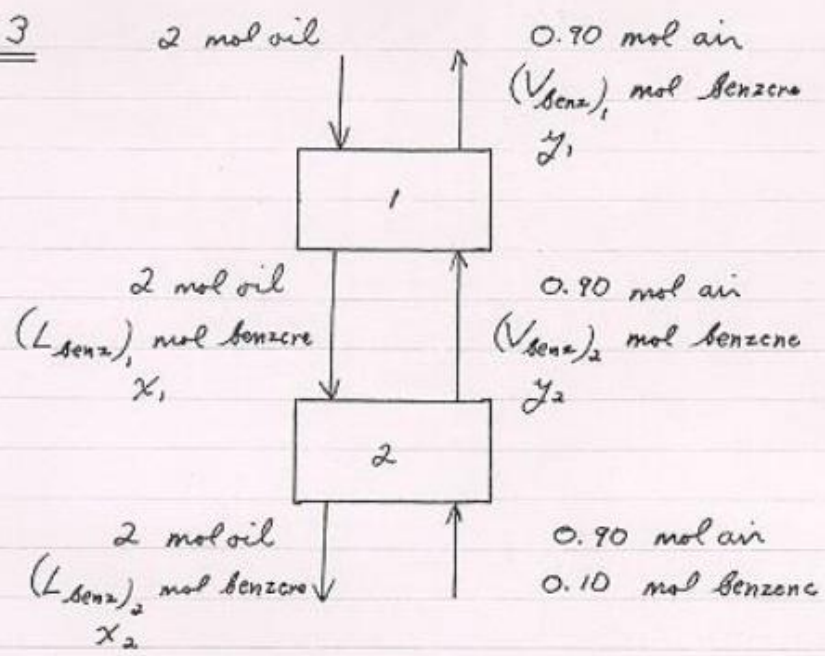 3
2 mol oil
0.90 mol air
(V_benz)₁ mol benzene
y₁
1
2 mol oil
(L_benz)₁ mol benzene
x₁
0.90 mol air
(V_benz)₂ mol benzene
y₂
2
2 mol oil
(L_benz)₂ mol benzene
x₂
0.90 mol air
0.10 mol benzene